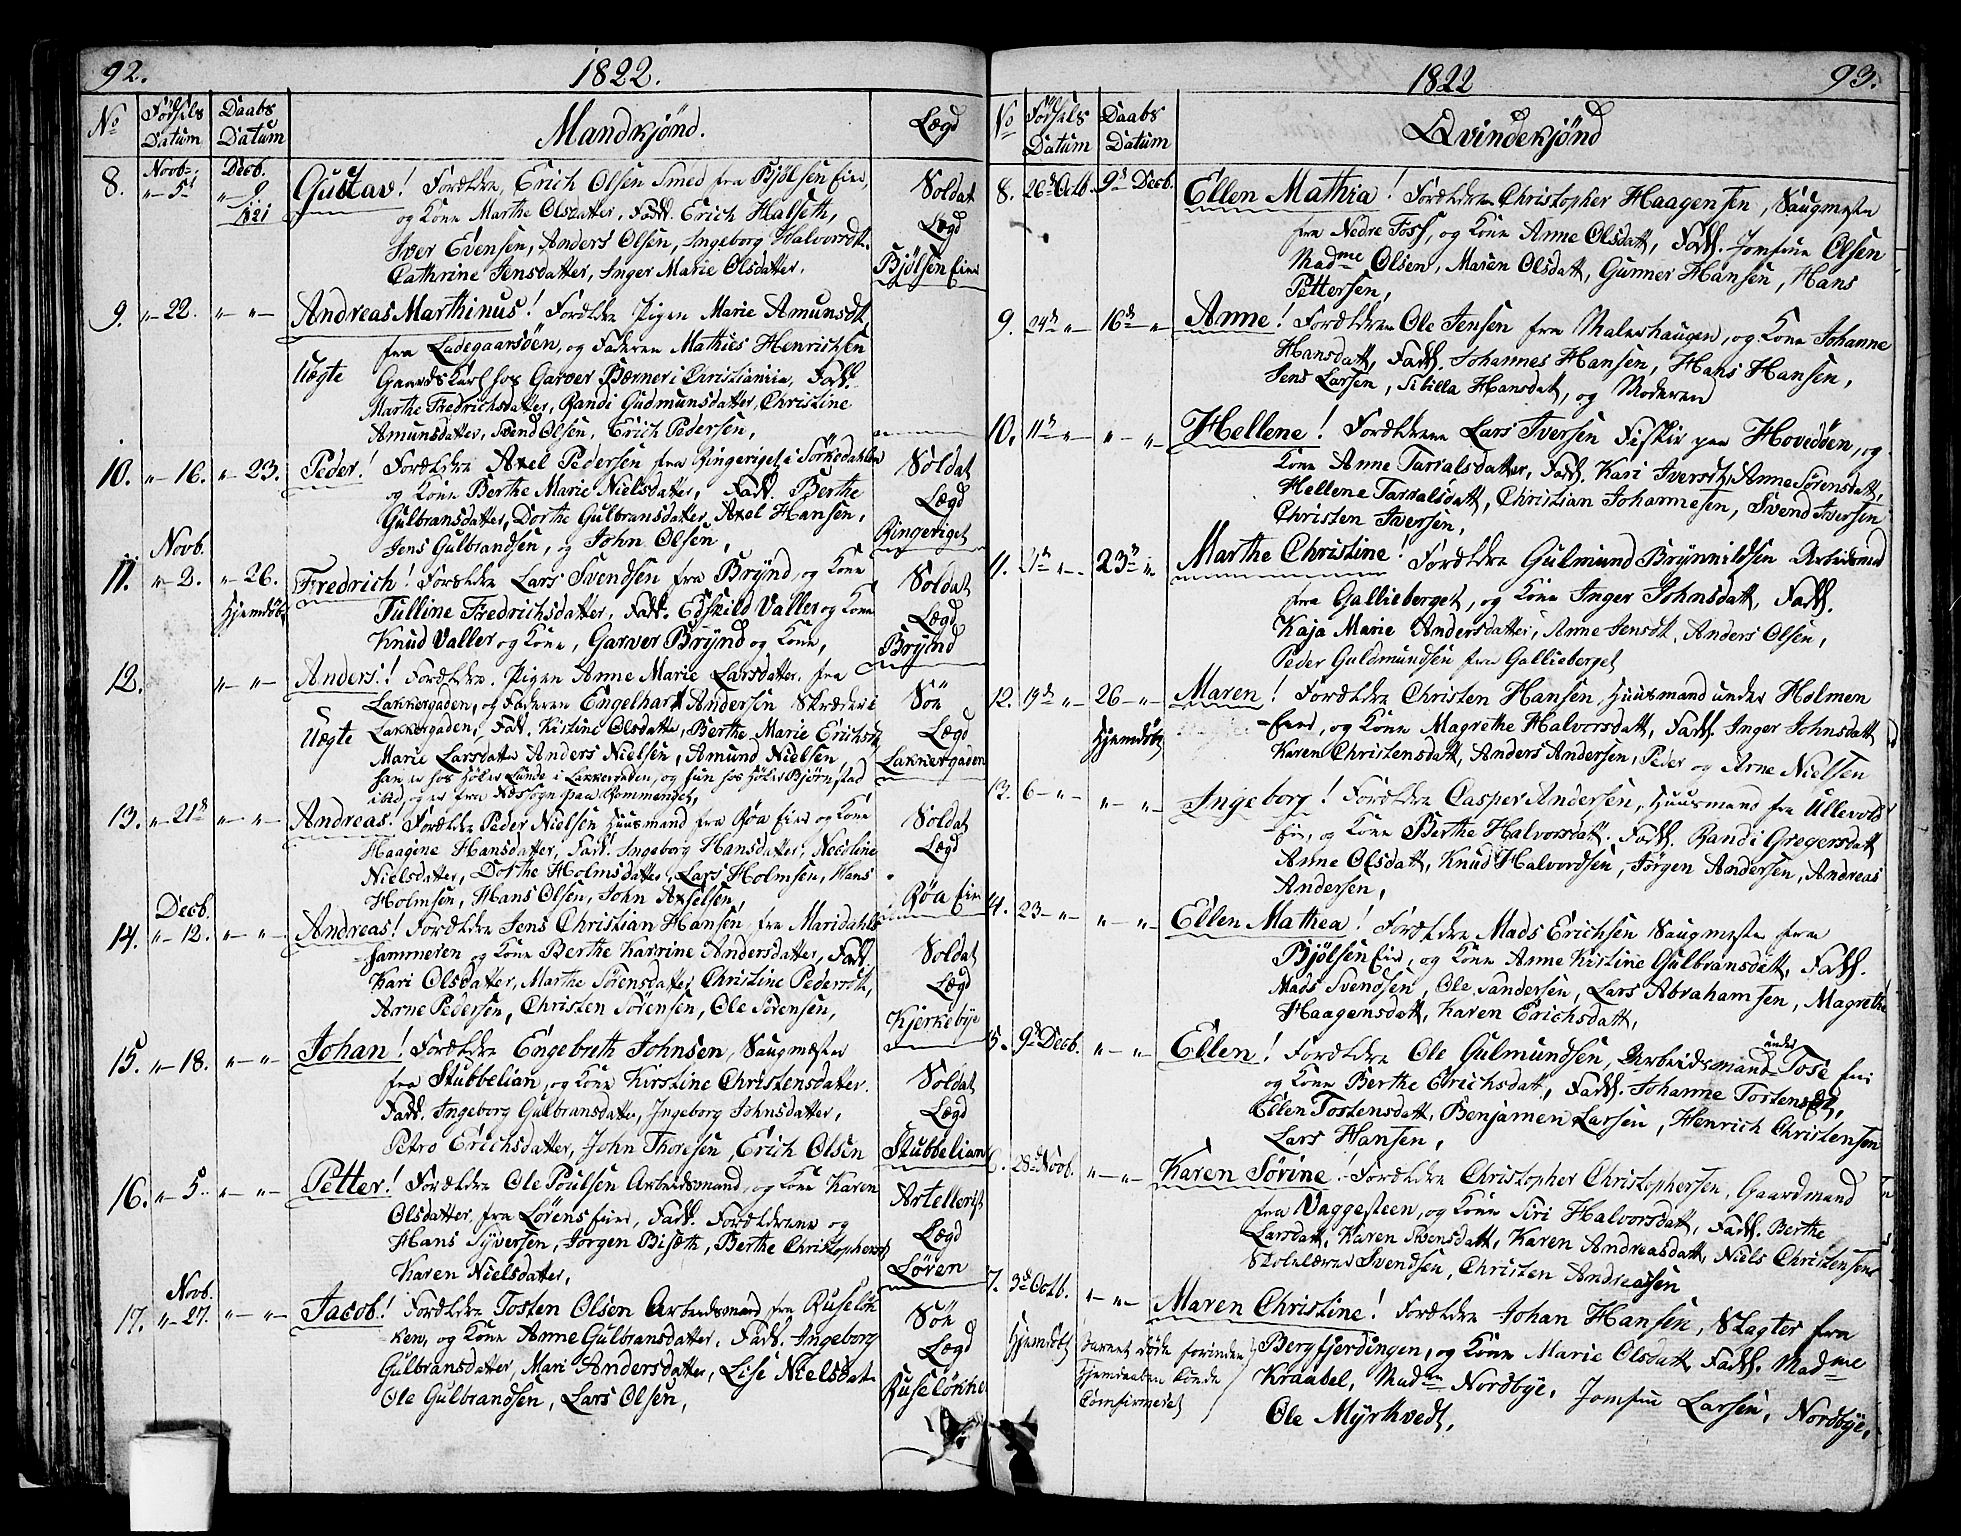 92.
1822.
No
Fødsels Datum
Daabs Datum
Mandkjønd.
Lægd
8.
Novb.
"- 5t
Decb.
"- 9
Gustav! Forældre, Erich Olsen Smed fra Bjølsen Eier,
og Kone Marthe Olsdatter, Fadd. Erich Halseth,
Iver Evensen, Anders Olsen, Ingeborg Halvorsdt.
Cathrine Jensdatter, Inger Marie Olsdatter,
Soldat
Lægd
Bjølsen Eier
9. "- 22. "- "-
Andreas Marthinus! Forældre Pigen Marie Amunsdt.
fra Ladegaarsöen, og Faderen Mathies Henrichsen
Uægte
Gaardskarl hos Garver Bærner i Christiania, Fadd.
Marthe Fredrichsdatter, Randi Gudmunsdatter, Christine
Amunsdatter, Svend Olsen, Erich Pedersen,
10. "- 16. "- 23.
Peder! Forældre Axel Pedersen fra Ringeriget i Sørkedahlen
og Kone Berthe Marie Nielsdatter, Fadd. Berthe
Gulbransdatter, Dorthe Gulbransdatter, Axel Hansen,
Jens Gulbrandsen, og John Olsen,
Soldat
Lægd
Ringeriget
Novb.
11. "- 2. "- 26.
Hjemdøbt
Fredrich! Forældre Lars Svendsen fra Brÿnd, og Kone
Tulline Fredrichsdatter, Fadd. Edskild Valler og Kone
Knud Valler og Kone, Garver Brÿnd og Kone,
Soldat
Lægd
Brÿnd
12. "- "-
Anders! Forældre. Pigen Anne Marie Larsdatter. fra
Lakkergaden, og Faderen Engelhart Andersen Skræder i
Uægte
Lakkergaden, Fadd. Kistine Olsdatter, Berthe Marie Erichsd.
Marie Larsdatter Anders Nielsen, Amund Nielsen
han er hos Høker Lunde i Lakkergaden, og hun hos Høker Bjørnstad
ibid, og er fra Næs sogn paa Rommeriget,
Söe
Lægd
Lakkergaden
13. "- 21d "- "-
Andreas! Forældre Peder Nielsen Huusmand fra Røa Eier og Kone
Haagine Hansdatter, Fadd. Ingeborg Hansdatter, Nicoline
Nielsdatter, Dorthe Holmsdatter, Lars Holmsen, Hans
Holmsen, Hans Olsen, John Axelsen,
Soldat
Lægd
Røa Eier
Decb.
14. "- 12. "- "-
Andreas! Forældre Jens Christian Hansen, fra Maridahls
hammeren og Kone Berthe Karrine Andersdatter, Fadd.
Kari Olsdatter, Marthe Sørensdatter Christine Pedersdt,
Arne Pedersen, Christen Sørensen, Ole Sörensen,
Soldat
Lægd
Kjerkebÿe
15. "- 18. "- "-
Johan! Forældre Engebreth Johnsen, Saugmester
fra Stubbelian, og Kone Kirstine Christensdatter.
Fadd. Ingeborg Gulbransdatter, Ingeborg Johnsdatter,
Petro Erichsdatter, John Thoresen, Erich Olsen
Soldat
Lægd
Stubbelian
16. "- 5. "- "-
Petter! Forældre Ole Poulsen Arbeidsmand, og Kone Karen
Olsdatter. fra Lørens Eier, Fadd. Forældrene og
Hans Sÿversen, Jørgen Biseth, Berthe Christophersd
Karen Nielsdatter,
Artellerist
Lægd
Løren
Novb.
17. "- 27. "- "-
Jacob! Forældre Tosten Olsen Arbeidsmand fra Ruseløk
ken, og Kone Anne Gulbransdatter, Fadd. Ingeborg
Gulbransdatter, Mari Andersdatter, Lise Nielsdat
Ole Gulbrandsen, Lars Olsen,
Söe
Lægd
Ruseløkke
1822
93.
No
Fødsels Datum
Daabs Datum
Qvindekjønd
8. 26d Octb. 9d Decb.
Ellen Mathia! Forældre Christopher Haagensen, Saugmester
fra Nedre Foss, og Kone Anne Olsdatt, Fadd. Jomfrue Olsen
Madme Olsen, Maren Olsdatt, Gunner Hansen, Hans
Pettersen,
9. 24d "- 16d "-
Anne! Forældre Ole Jensen fra Malerhaugen, og Kone Johanne
Hansdatt, Fadd. Johannes Hansen, Hans Hansen,
Jens Larsen, Sibilla Hansdat, og Moderen
10. 11d "- "- "-
Hellene! Forældrene Lars Iversen Fisker paa Hovedøen, og
Kone Anne Tarralsdatter, Fadd. Kari Iversdt, Anne Sørensdatt,
Hellene Tarralsdatt, Christian Johannesen, Svend Iversen
Christen Iversen,
11. "- 23d "-
Marthe Christine! Forældre Gulmund Brÿnnildsen Arbeidsmand
fra Gallieberget, og Kone Inger Johnsdatt, Fadd.
Kaja Marie Andersdatter, Anne Jensdt. Anders Olsen,
Peder Guldmundsen fra Gallieberget
12. 19d "- 26 "-
Hjemdøbt
Maren! Forældre Christen Hansen, Huusmand under Holmen
Eier, og Kone Magrethe Halvorsdatt, Fadd. Inger Johnsdatt
Karen Christensdatt, Anders Andersen, Peder og Arne Nielsen
13. 6 "- "- "-
Ingeborg! Forældre Casper Andersen, Huusmand fra Ullevold
Eie, og Kone Berthe Halvorsdatt. Fadd. Randi Gregersdatt
Anne Olsdatt, Knud Halvordsen, Jørgen Andersen, Andreas
Andersen,
4. 23 "- "- "-
Ellen Mathea! Forældre Mads Erichsen Saugmester fra
Bjölsen Eier, og Kone Anne Kistine Gulbransdatt, Fadd.
Mads Svendsen, Ole Sandersen, Lars Abrahamsen, Magrethe
Haagensdatt, Karen Erichsdatt,
5. 9d Decb. "- "-
Ellen! Forældre Ole Gulmundsen, Arbeidsmand under Tose Eier
og Kone Berthe Erichsdatt, Fadd. Johanne Tostensdt,
Ellen Tostensdatt, Benjamen Larsen, Henrich Christensen
Lars Hansen,
6. 28d Novb. "- "-
Karen Sørine! Forældre Christopher Christophersen, Gaardmand
fra Vaggesteen, og Kone Siri Halvorsdatt, Fadd. Berthe
Larsdatt, Karen Svensdatt, Karen Andreasdatt, Niels Christensen
Skolelærer Svendsen, Christen Andreassen
7. 3d Octb. "- "-
Hjemdøbt
Barnet døde forinden
Hjemdaaben kunde
Comfirmeret
Maren Christine! Forældre Johan Hansen, Slagter fra
Bergfjerdingen, og Kone Marie Olsdatt, Fadd. Madme
Kraabel, Madm Nordbÿe, Jomfrue Larsen, Nordbÿe,
Ole Mÿrhvedt,